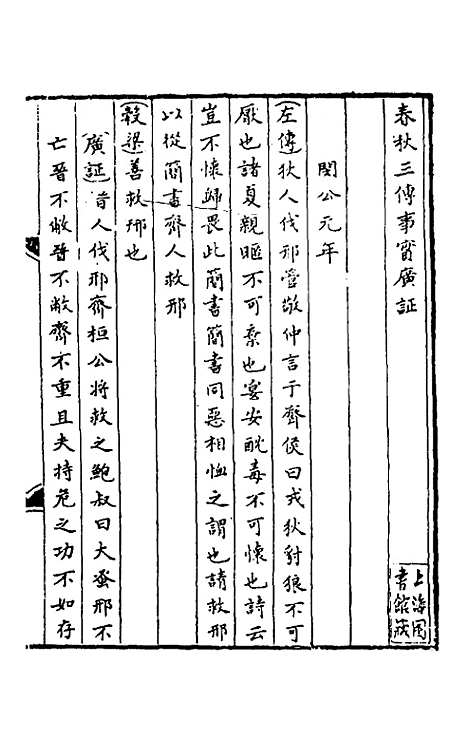 春秋三傳事實廣証
上海图
書館藏
閔公元年
左傳狄人伐邢管敬仲言于齊侯曰戎狄豺狼不可
厭也諸夏親暱不可棄也宴安酖毒不可懷也詩云
豈不懷歸畏此簡書簡書同惡相恤之謂也請救邢
以從簡書齊人救邢
穀梁善救邢也
廣証昔人伐邢齊桓公將救之鮑叔曰大蚤邢不
亡晉不敝晉不敝齊不重且夫持危之功不如存